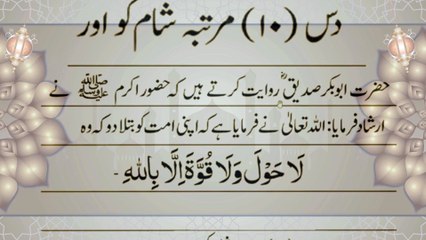 دس (۱۰) مرتبہ شام کو اور
حضرت ابوبکر صدیقؓ روایت کرتے ہیں کہ حضور اکرم ﷺ نے
ارشاد فرمایا: اللہ تعالیٰ نے فرمایا ہے کہ اپنی امت کو بتلا دو کہ وہ
لَا حَوْلَ وَلَا قُوَّةَ اِلَّا بِاللهِ -